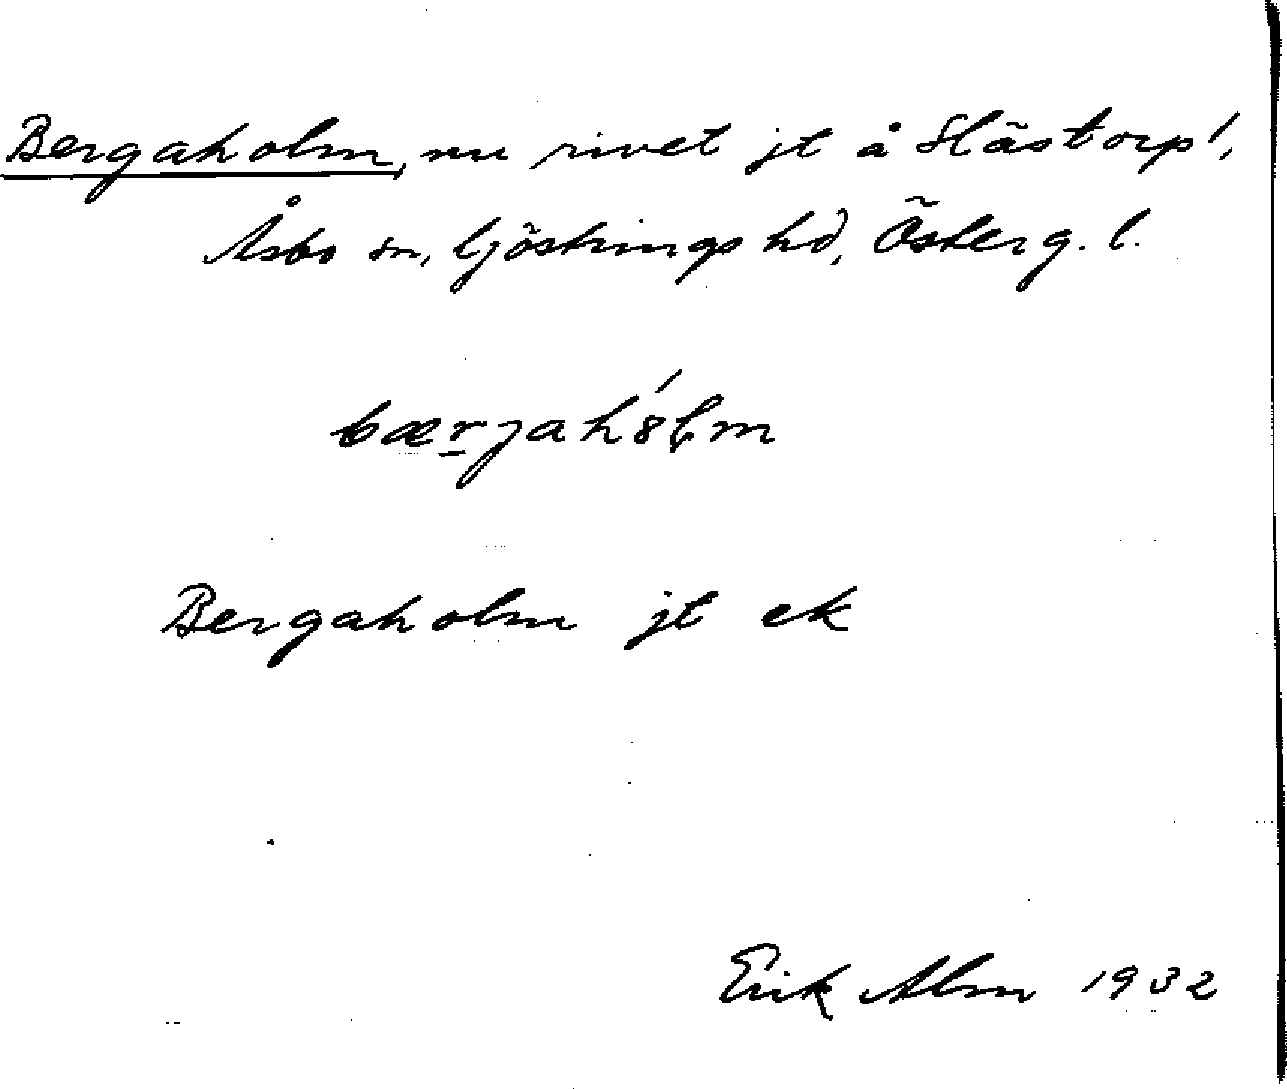 Bergaholm, nu rivet jt å Hästorp!,
Åsbo sn, Göstrings hd, Österg. l.
bærjahólm
Bergaholm jt ek
Erik Alm 1932